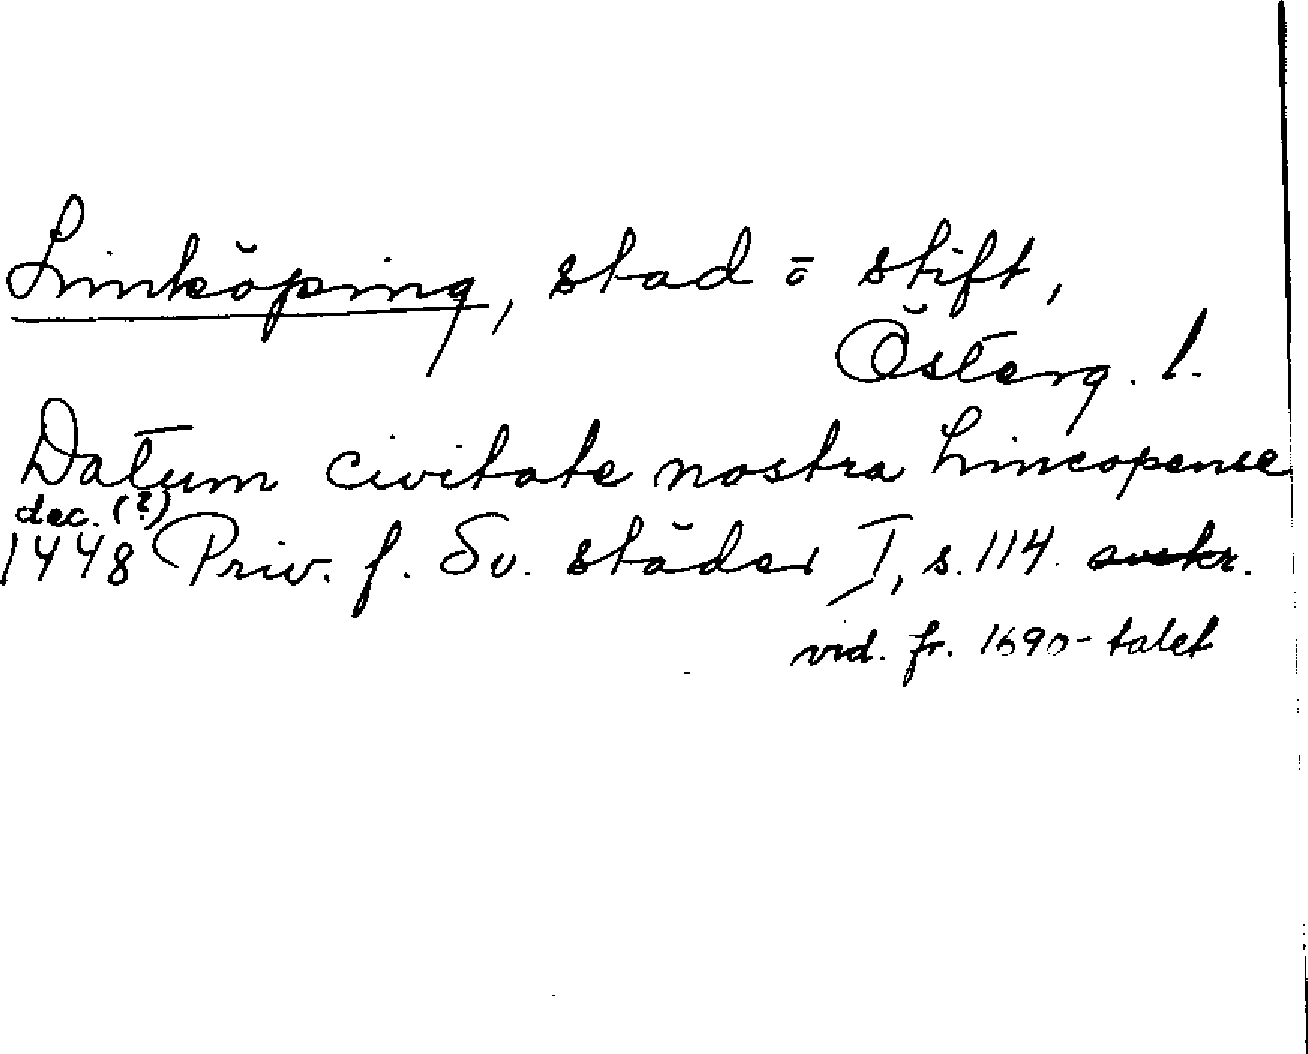 Linköping, stad o stift,
Österg. l.
Datum civitate nostra Lincopense
dec. (?)
1448 Priv. f. Sv. städer I, s. 114. avskr.
vid. fr. 1690-talet